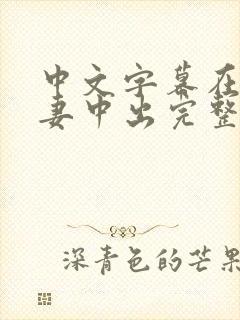 中文字幕在
妻中出完整
深青色的芒果